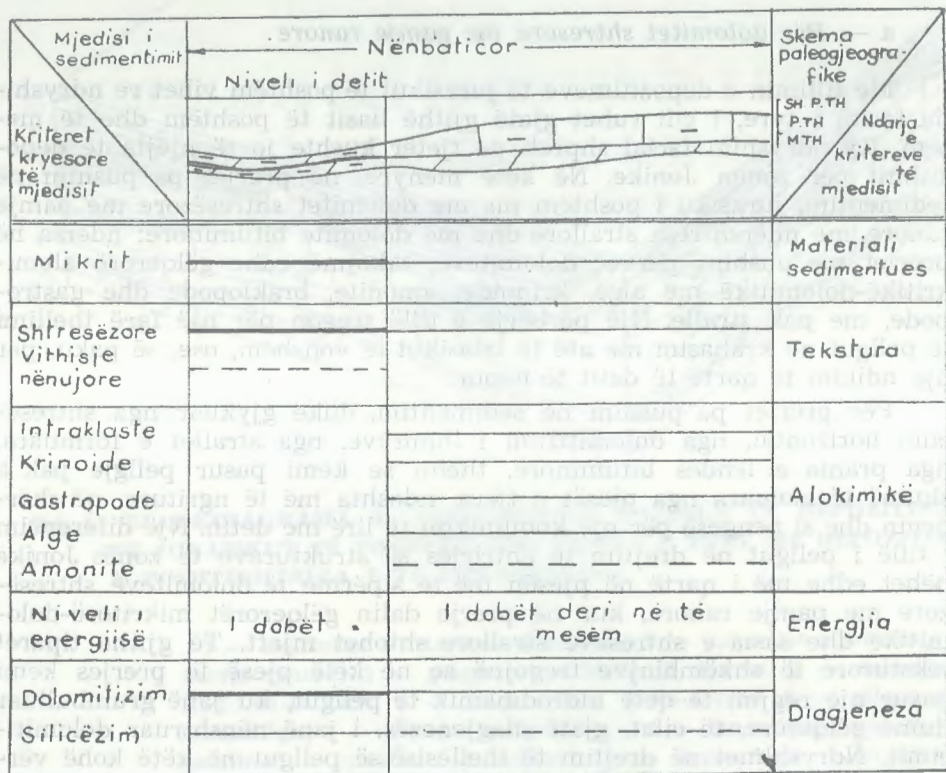 Mjedisi i
sedimentimit
Nënbaticor
Niveli i detit
Skema
paleogjeogra-
fike
SH P.TH
P.TH
M.TH
Kriteret
kryesore
të
mjedisit
Ndarja
e
kritereve
të
mjedisit
Mikrit
Materiali
sedimentues
Shtresëzore
Vithisje
nënujore
Tekstura
Intraklaste
Krinoide
Gastropode
Alge
Amonite
Alokimikë
Niveli i
energjisë
I dobët
I dobët deri në të
mesëm
Energjia
Dolomitizim
Silicëzim
Diagjeneza